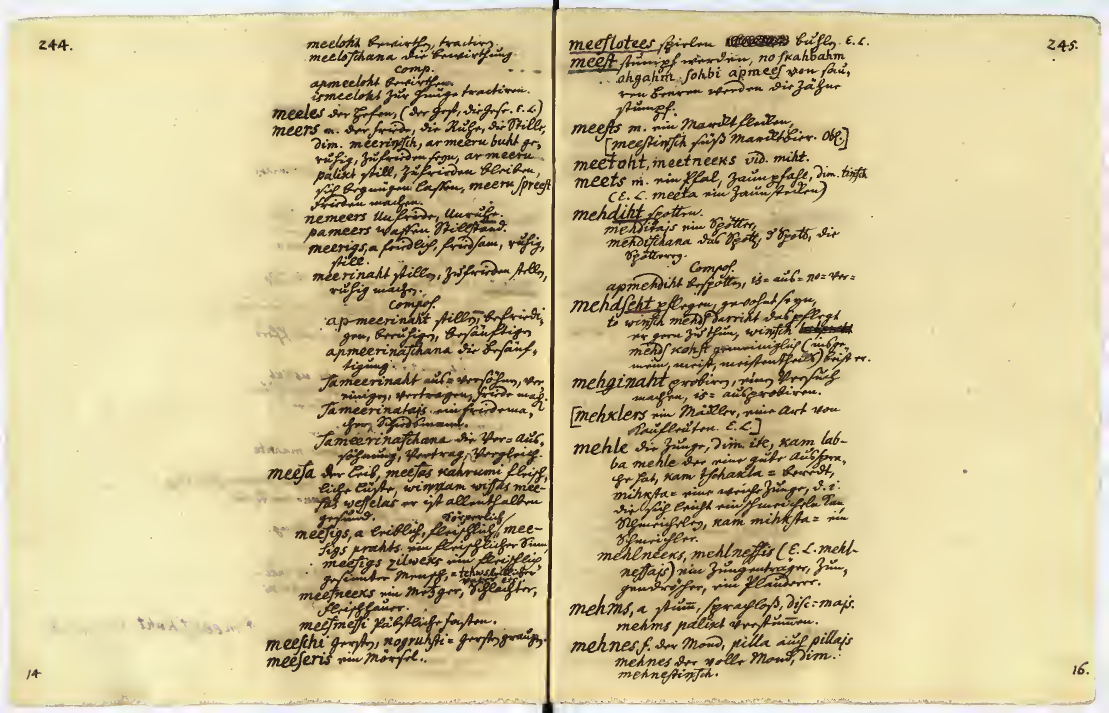 244.
meeloht bewirthen, tractiren.
meeloschana die bewirthung.
Comp.
apmeeloht bewirthen.
ismeeloht zur Genüge tractiren.
meeles der Hefen, (der Gest, die Hefe. E.L.)
meers m. der Friede, die Ruhe, die Stille,
dim. meerinsch, ar meeru buht ge-
ruhig, zufrieden seyn, ar meeru
palikt still, zufrieden bleiben,
sich begnügen lassen, meeru spreest
Frieden machen.
nemeers Unfriede, Unruhe.
pameers Waffen Stillstand.
meerigs, a friedlich, friedsam, ruhig,
still.
meerinaht stillen, zufrieden stellen,
ruhig machen.
Compos.
apmeerinaht stillen, befriedi-
gen, beruhigen, besänftigen
apmeerinaschana die Besänf-
tigung.
sameerinaht aus= versöhnen, ver-
einigen, vertragen, Friede mach.
sameerinatajs ein friedema-
cher, Schiedsmann.
sameerinaschana die Ver= Aus-
söhnung, Vertrag, Vergleich.
meesa der Leib, meesas kahrumi fleisch-
liche Lüste, winnam wissas mee-
sas wesselas er ist allenthalben
gesund.
Körperlich
meesigs, a leiblich, fleischlich, mee-
sigs prahts ein fleischlicher Sinn
meesigs zilweks ein fleischlich
gesinnter Mensch,
meesneeks ein Metzger, Schlachter,
Fleischhauer.
meesmesi Päbstliche fasten.
meeschi Gersten, nogruhsti= Gersten graupen.
meeseris ein Mörsel.
14
245.
meeslotees spielen buhlen. E.L.
meest stumpf werden, no skahbahm
ohgahm sohbi apmees von sau-
ren Beeren werden die Zähne
stumpf.
meests m. ein Marckt flecken,
[meestinsch süß Marcktbier. Obl.]
meetoht, meetneeks vid. miht.
meets m. ein Pfal, Zaunpfahl, dim. tinsch
(E.L. meeta ein Zaunstecken)
mehdiht spotten.
mehditajs ein Spötter,
mehdischana das Spott, d Spott, die
Spötterey.
Compos.
apmehdiht bespotten, is= aus= no= ver=
mehdseht pflegen, gewohnt seyn,
to winsch mehds darriht das pflegt
er gern zu thun, winsch
mehds kohst gemeiniglich (insge-
mein, meist, meistentheils) beist er.
mehginaht probiren, einen Versuch
machen, is= ausprobiren.
[mehklers ein Mäkler, eine Art von
Kaufleuten. E.L.]
mehle die Zunge, dim. ite, kam lab-
ba mehle der eine gute Ausspra-
che hat, kam tschakla= beredt,
mihksta= eine weiche Zunge, d.i.
die sich leicht einschmeicheln kan
Schmeichler, kam mihksta= ein
Schmeichler.
mehlneeks, mehlnessis (E.L. mehl-
nessajs) ein Zungenträger, Zun-
gendrescher, ein Plauderer.
mehms, a stumm, sprachloß, disc= majs.
mehms palikt verstummen.
mehnes f. der Mond, pilla auch pillajs
mehnes der volle Mond, dim.
mehnestinsch.
16.